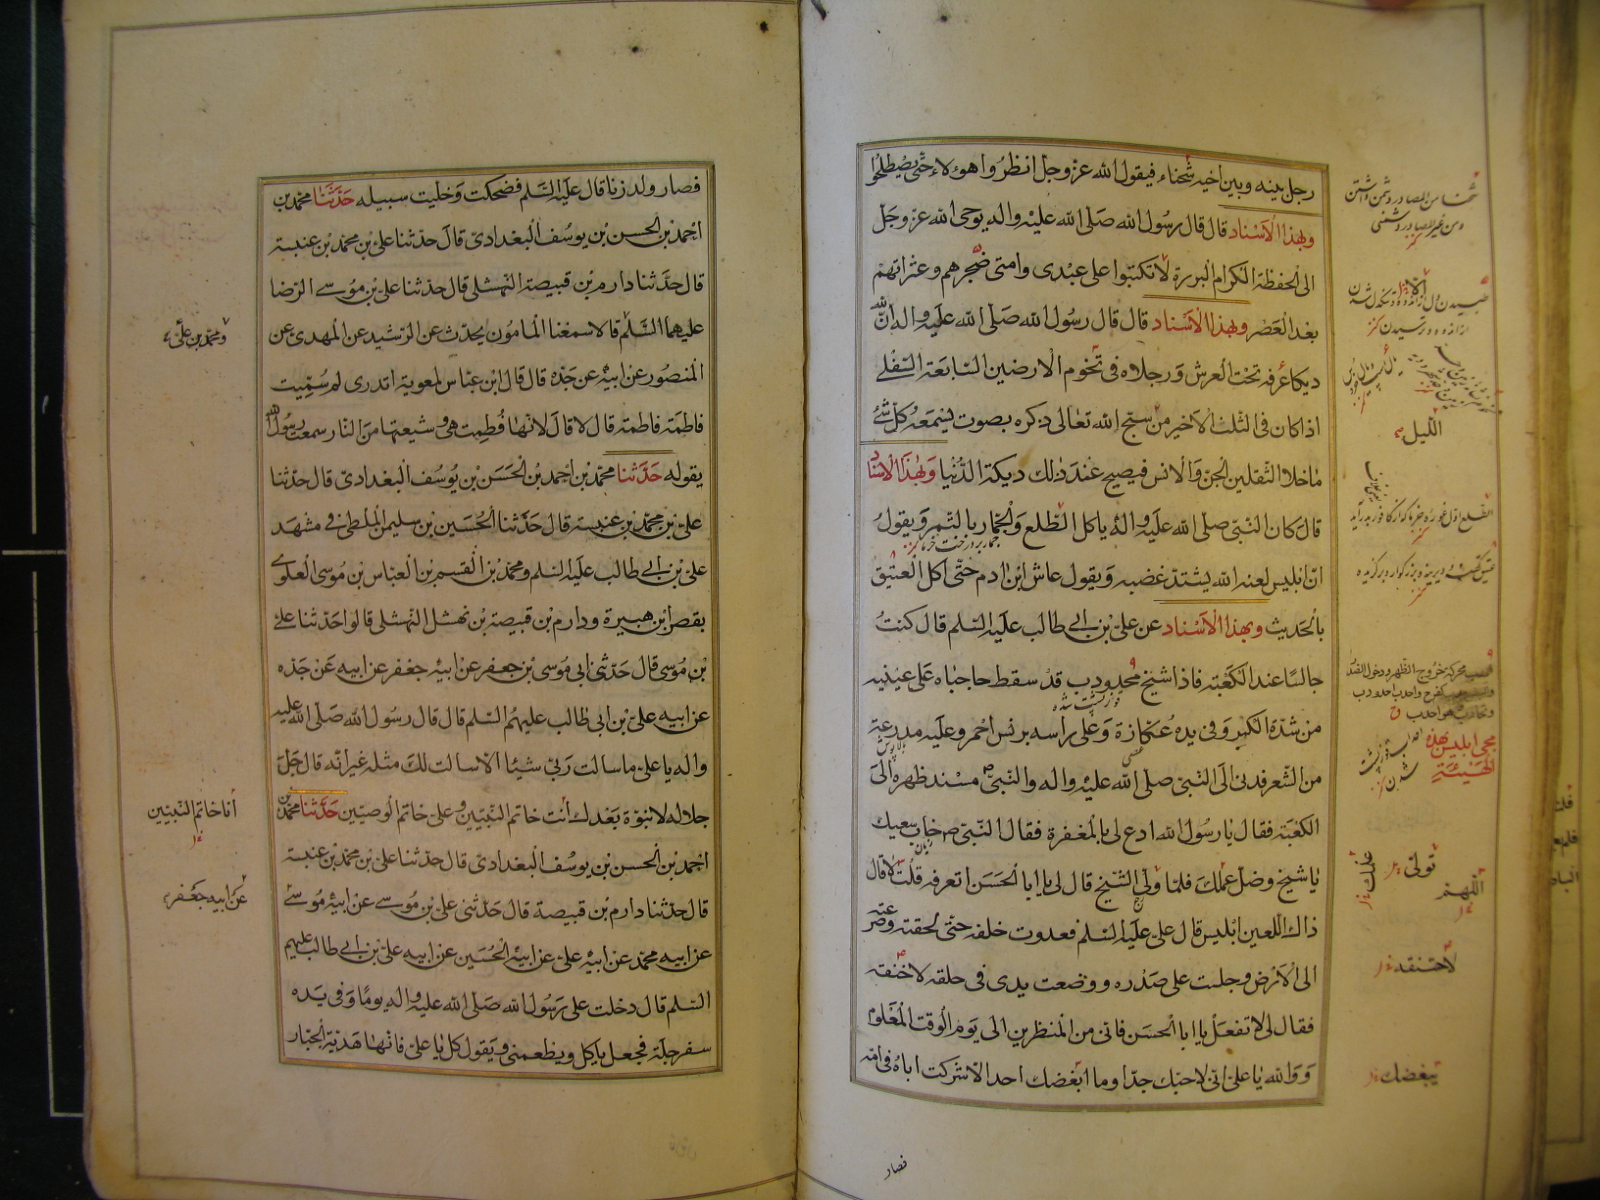 رجل بينه وبين اخيه شحناء فيقول الله عز وجل انظروا هؤلاء حتى يصطلحوا
وبهذا الاسناد قال قال رسول الله صلى الله عليه واله يوحى الله عز وجل
الى الحفظة الكرام البررة لا تكتبوا على عبدى وامتى ضجرهم وعثراتهم
بعد العصر وبهذا الاسناد قال قال رسول الله صلى الله عليه واله ان لله
ديكا عرفه تحت العرش ورجلاه فى تخوم الارضين السابعة السفلى
اذا كان فى الثلث الاخير من سبح الله تعالى ذكره بصوت يسمعه كل شئ
ما خلا الثقلين الجن والانس فيصيح عند ذلك ديكة الدنيا وبهذا الاسناد
قال كان النبى صلى الله عليه واله ياكل الطلع والجمار بالتمر ويقول
ان ابليس لعنه الله يشتد غضبه ويقول عاش ابن ادم حتى اكل العتيق
بالحديث وبهذا الاسناد عن على بن ابى طالب عليه السلم قال كنت
جالسا عند الكعبة فاذا شيخ محدودب قد سقط حاجباه على عينيه
من شدة الكبر وفى يده عكازة وعلى راسه برنس احمر وعليه مدرعة
من الشعر فدنى الى النبى صلى الله عليه واله والنبى ص مسند ظهره الى
الكعبة فقال يا رسول الله ادع لى بالمغفرة فقال النبى ص خاب سعيك
يا شيخ وضل عملك فلما ولى الشيخ قال لى يا ابا الحسن اتعرفه قلت لا قال
ذاك اللعين ابليس قال على عليه السلم فعدوت خلفه حتى لحقته وصرعته
الى الارض وجلست على صدره ووضعت يدى فى حلقه لاخنقه
فقال لى لا تفعل يا ابا الحسن فانى من المنظرين الى يوم الوقت المعلوم
ووالله يا على انى لاحبك جدا وما ابغضك احد الا شركت اباه فى امه
فصار
الليل
مجى ابليس بهذه
الهيئة
تولى
عملك
اللهم
لاختنقه
يبغضك
فصار ولد زنا قال عليه السلم فضحكت وخليت سبيله حدثنا محمد بن
احمد بن الحسن بن يوسف البغدادى قال حدثنا على بن محمد بن عنبسة
قال حدثنا دارم بن قبيصة النهشلى قال حدثنا على بن موسى الرضا
عليهما السلم قالا سمعنا المامون يحدث عن الرشيد عن المهدى عن
المنصور عن ابيه عن جده قال قال ابن عباس لمعوية اتدرى لم سميت
فاطمة فاطمة قال لا قال لانها فطمت هى وشيعتها من النار سمعت رسول الله
يقوله حدثنا محمد بن احمد بن الحسن بن يوسف البغدادى قال حدثنا
على بن محمد بن عنبسة قال حدثنا الحسين بن سليمن الملطى فى مشهد
على بن ابى طالب عليه السلم ومحمد بن القسم بن العباس بن موسى العلوى
بقصر ابن هبيرة ودارم بن قبيصة بن نهشل النهشلى قالوا حدثنا على
بن موسى قال حدثنى ابى موسى بن جعفر عن ابيه جعفر عن ابيه عن جده
عن ابيه على بن ابى طالب عليهم السلم قال قال رسول الله صلى الله عليه
واله يا على ما سالت ربى شيئا الا سالت لك مثله غير انه قال جل
جلاله لا نبوة بعدك انت خاتم النبيين وعلى خاتم الوصيين حدثنا محمد بن
احمد بن الحسن بن يوسف البغدادى قال حدثنا على بن محمد بن عنبسة
قال حدثنا دارم بن قبيصة قال حدثنى على بن موسى عن ابيه موسى
عن ابيه محمد عن ابيه على عن ابيه الحسين عن ابيه على بن ابى طالب عليهم
السلم قال دخلت على رسول الله صلى الله عليه واله يوما وفى يده
سفرجلة فجعل ياكل ويطعمنى ويقول كل يا على فانها هدية الجبار
ومحمد بن على
انا خاتم النبيين
عن ابيه جعفر